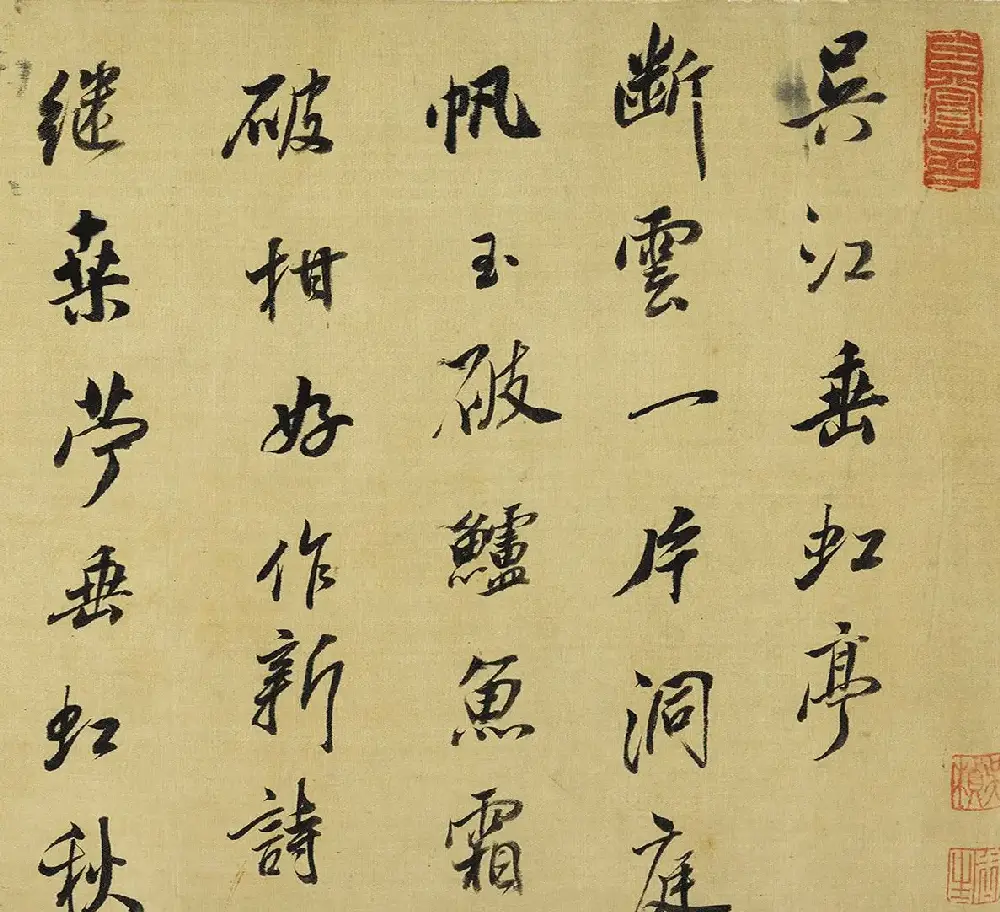 吳江垂虹亭
断雲一片洞庭
帆玉破鱸魚霜
破柑好作新詩
継桒苧垂虹秋